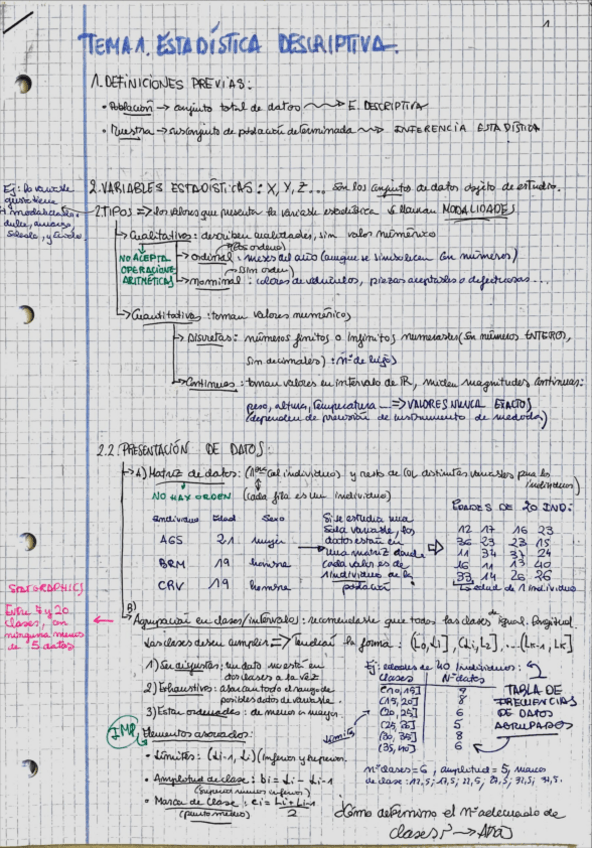 1
TEMA 1. ESTADÍSTICA DESCRIPTIVA.
1. DEFINICIONES PREVIAS:
• Población → conjunto total de datos → E. DESCRIPTIVA
• Muestra → subconjunto de población determinada → INFERENCIA ESTADÍSTICA
2. VARIABLES ESTADÍSTICAS: X, Y, Z... son los conjuntos de datos objeto de estudio.
2.TIPOS => los valores que presentan la variable estadística se llaman MODALIDADES
→ Cualitativas: describen cualidades, sin valor numérico
(Con orden)
→ ordinal: meses del año (aunque se simbolicen con números)
NO ACEPTA
OPERACIONES
ARITMÉTICAS
(Sin orden)
→ nominal: colores de vehículos, piezas aceptables o defectuosas...
→ Cuantitativas: toman valores numéricos
→ Discretas: números finitos o infinitos numerables (Son números ENTEROS,
sin decimales): nº de hijos
→ Continuas: toman valores en intervalo de R, miden magnitudes continuas:
peso, altura, temperatura ... => VALORES NUNCA EXACTOS
(dependen de precisión de instrumento de medida)
2.2. PRESENTACIÓN DE DATOS:
→ A) Matriz de datos: (1ª col individuo) y resto de col distintas variables para los
individuos)
NO HAY ORDEN (cada fila es un individuo)
Individuo Edad Sexo
AGS 21 mujer
BRM 19 hombre
CRV 19 hombre
Si se estudia una
sola variable, los
datos están en
una matriz donde
cada valor es de
1 individuo de la
población
EDADES DE 20 IND:
12 17 16 23
36 23 23 15
11 34 37 24
16 11 13 40
33 14 26 26
Edad de 1 individuo
STATGRAPHICS
Entre 5 y 20
clases, con
ninguna menos
de 5 datos
B) Agrupación en clases/intervalos: recomendable que todas las clases de igual longitud.
Las clases deben cumplir => Tendrán la forma: (L0, L1], (L1, L2], ... (Lk-1, Lk]
1) Ser disjuntas: un dato no está en
dos clases a la vez
2) Exhaustivas: abarcan todo el rango de
posibles datos de variable.
3) Estar ordenadas: de menor a mayor.
Ej: edades de 40 individuos:
Clases Nº datos
[10,15] 7
(15,20] 8
(20,25] 6
(25,30] 5
(30,35] 8
(35,40] 6
TABLA DE
FRECUENCIAS
DE DATOS
AGRUPADOS
IMP. Elementos asociados:
• Límites: (Li-1, Li) (inferior y superior.
• Amplitud de clase: bi = Li - Li-1
(superior menos inferior)
• Marca de clase: ci = Li + Li-1 / 2
(punto medio)
nº clases = 6, amplitud = 5, marcas
de clase: 12,5; 17,5; 22,5; 27,5; 32,5; 37,5.
¿Cómo determino el nº adecuado de
clases? →